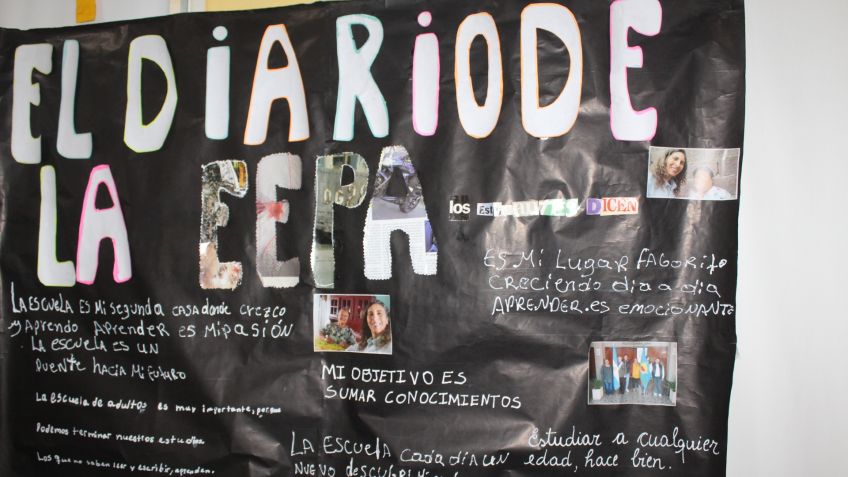 EL DIARIO DE
LA EEPA
los Estudiantes DICEN
ES Mi LUGAR FAGORITO
CRECIENDO DIA A DIA
APRENDER.ES EMOCIONANTE
LA ESCUELA ES Mi SEGUNDA CASA donde CREZCO
y APRENDO APRENDER ES Mi PASIÓN
LA ESCUELA ES UN
PUENTE HACIA Mi FUTURO
MI OBJETIVO ES
SUMAR CONOCIMIENTOS
La escuela de adultos es muy importante, porque
Podemos terminar nuestros estudios.
Los que no saben leer y escribir, aprenden.
LA ESCUELA CADA DÍA UN
NUEVO
Estudiar a cualquier
edad, hace bien.